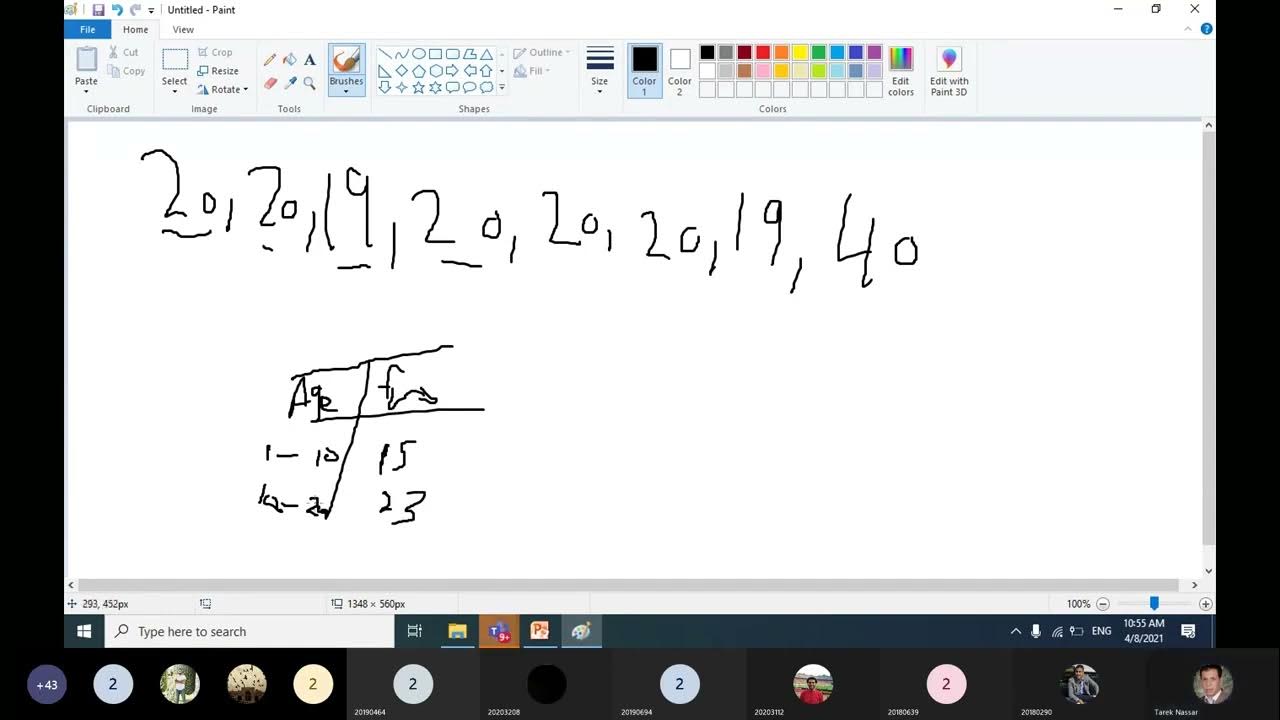 Untitled - Paint
File Home View
Paste Cut Copy Clipboard
Select Crop Resize Rotate Image
Tools
Brushes
Shapes Outline Fill
Size
Color 1 Color 2
Edit colors Colors
Edit with Paint 3D
20, 20, 19, 20, 20, 20, 19, 40
Age
1 - 10 15
10 - 20 23
293, 452px 1348 × 560px 100%
Type here to search 9+ ENG 10:55 AM 4/8/2021
+43 2 2 2 2 2
20190464 20203208 20190694 20203112 20180639 20180290 Tarek Nassar